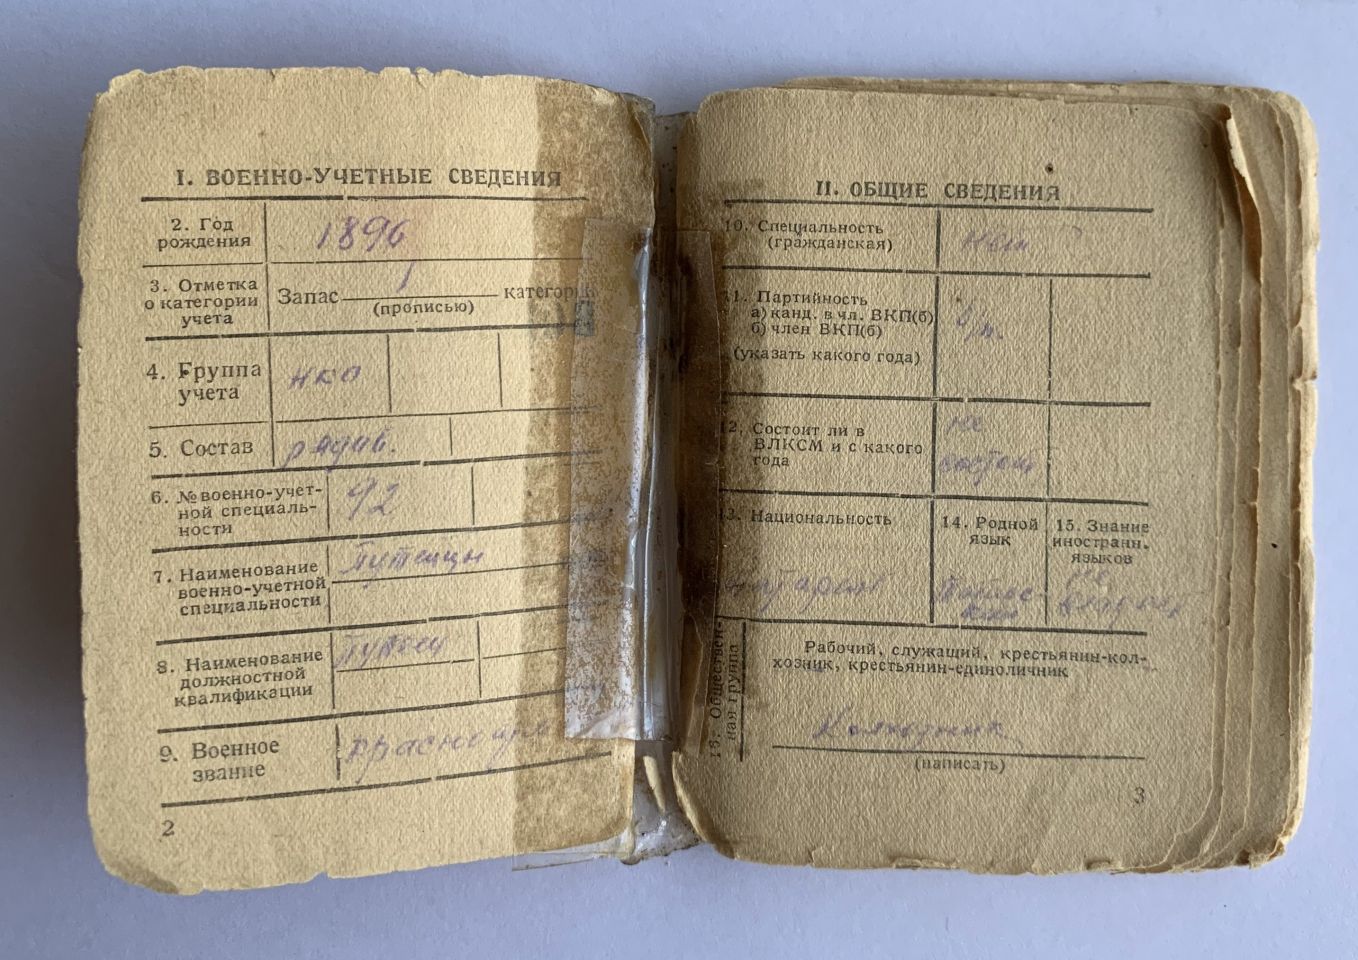 I. ВОЕННО-УЧЕТНЫЕ СВЕДЕНИЯ
2. Год
рождения
1896
3. Отметка
о категории
учета
1
Запас категор
(прописью)
4. Группа
учета
нко
5. Состав
рядов.
6. № военно-учет-
ной специаль-
ности
92
7. Наименование
военно-учетной
специальности
Путейцы
8. Наименование
должностной
квалификации
9. Военное
звание
2
II. ОБЩИЕ СВЕДЕНИЯ
10. Специальность
(гражданская)
нет
11. Партийность
а) канд. в чл. ВКП(б)
б) член ВКП(б)
(указать какого года)
б/п.
12. Состоит ли в
ВЛКСМ и с какого
года
не
состоит
13. Национальность
14. Родной
язык
15. Знание
иностранн.
языков
не
владеет
16. Обществен-
ная группа
Рабочий, служащий, крестьянин-кол-
хозник, крестьянин-единоличник
Колхозник
(написать)
3